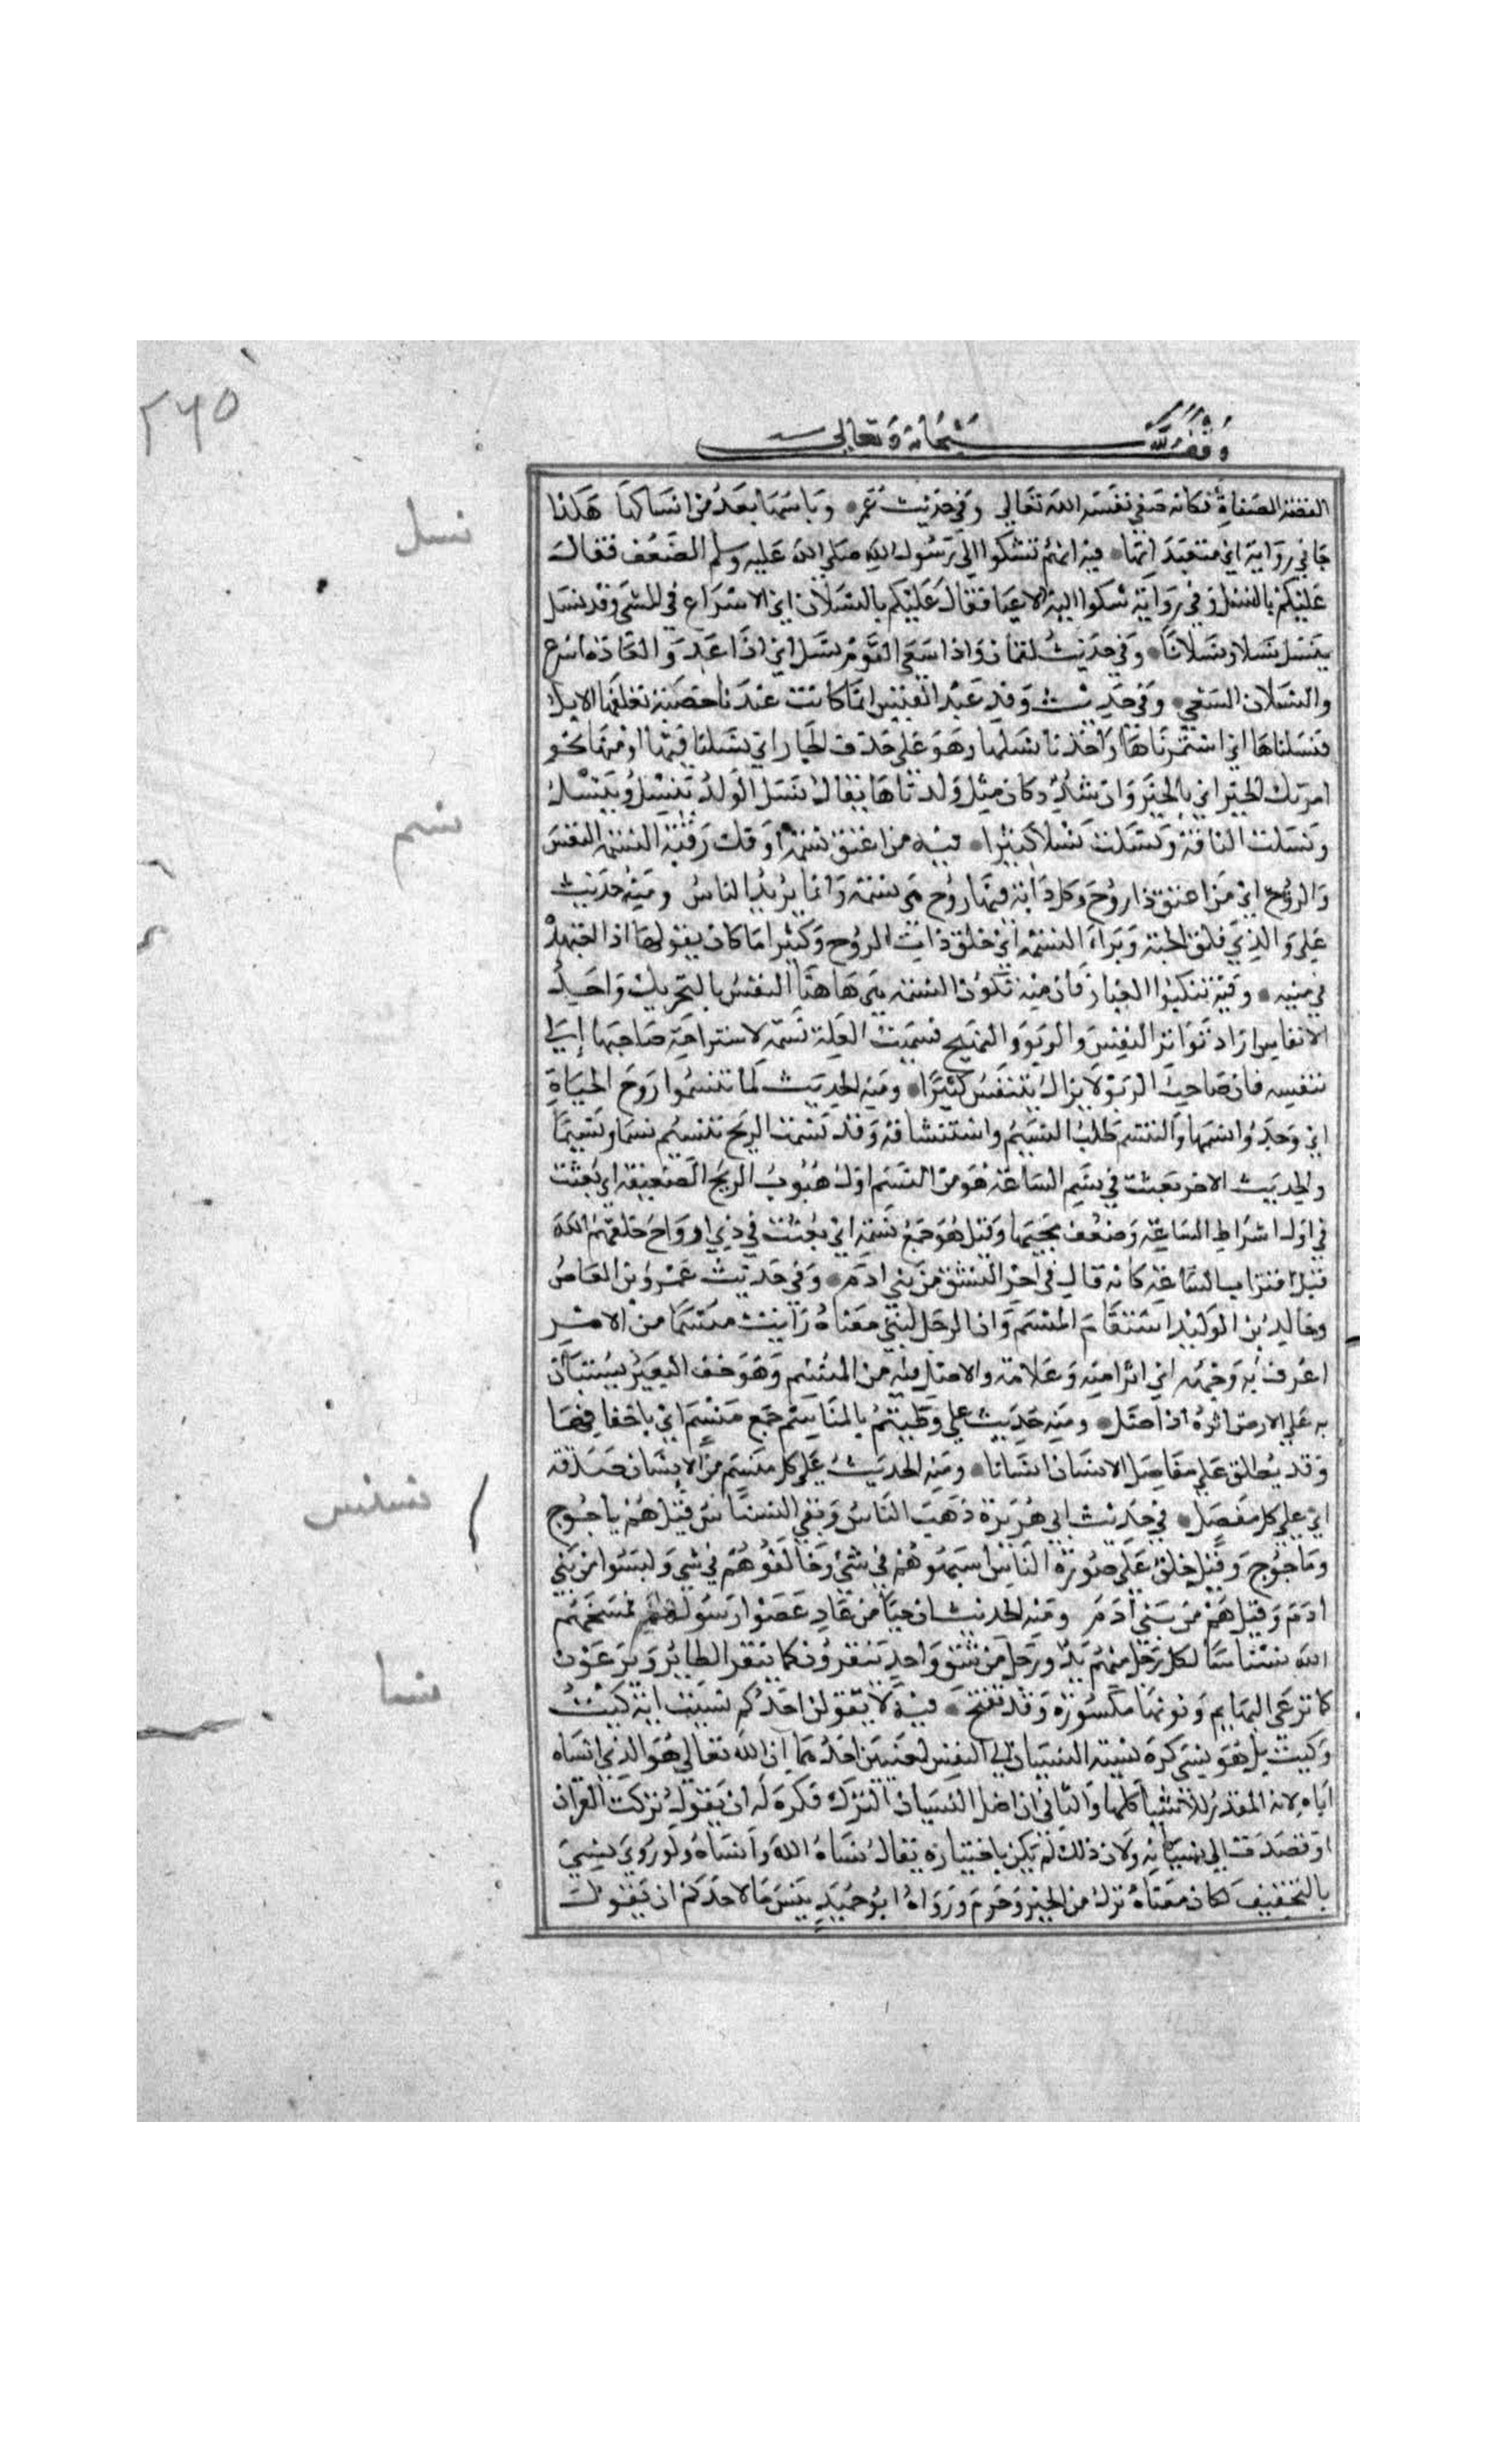 ٢٦٥
وقف لله سبحانه وتعالى
الفضة المصفاة فكانه صفي نفسه لله تعالي وفي حديث عمر وياسها بعد من انساكها هكذا
جا في رواية اي متعبداتها فيه انهم شكوا الي رسول الله صلي الله عليه وسلم الضعف فقال
عليكم بالنسل وفي رواية شكوا اليه الاعيا فقال عليكم بالنسلان اي الاسراع في المشي وقد نسل
ينسل نسلا ونسلانا وفي حديث لقمان واذا سعي القوم نسل اي اذا عدوا لغاذة اسرع
والنسلان السعي وفي حديث وفد عبد القيس انما كانت عندنا حصبة نعلفها الابل
فنسلناها اي استثمرناها واخذنا نسلها وهو علي حذف الجار اي نسلنا بها او منها نحو
امرتك الخير اي بالخير وان شدد كان مثل ولدناها يقال نسل الولد ينسل وينسل
ونسلت الناقة ونسلت نسلا كثيرا فيه من اعتق نسمة او فك رقبة النسمة النفس
والروح اي من اعتق ذا روح وكل دابة فيها روح هي نسمة وانما يريد الناس ومنه حديث
علي والذي فلق الحبة وبراء النسمة اي خلق ذات الروح وكثيرا ما كان يقولها اذا اجتهد
في يمينه وفيه تنكبوا الغبار فان منه تكون النسمة هي هاهنا النفس بالتحريك واحد
الانفاس اراد تواتر النفس والربو والنهيج فسميت العلة نسمة لاستراحة صاحبها الي
تنفسه فان صاحب الربو لا يزال يتنفس كثيرا ومنه الحديث لما تنسموا روح الحياة
اي وجدوا نسيمها والتنسم طلب النسيم واستنشاقه وقد نسمت الريح تنسم نسما ونسيما
والحديث الاخر بعثت في نسم الساعة هو من النسيم اول هبوب الريح الضعيفة اي بعثت
في اول اشراط الساعة وضعف مجيها وقيل هو جمع نسمة اي بعثت في ذوي ارواح خلقهم الله
قبل اقتراب الساعة كانه قال في اخر النشؤ من بني ادم وفي حديث عمرو بن العاص
وخالد بن الوليد استقام المنسم وان الرجل لنبي معناه راينت منسما من الامر
اعرف به وجهه اي اثرا منه وعلامة والاصل فيه من المنسم وهو خف البعير يستبان
به علي الارض اثره اذا ضل ومنه حديث علي وطيتهم بالمناسم جمع منسم اي باخفافها
وقد يطلق علي مفاصل الانسان اتساعا ومنه الحديث علي كل منسم من الانسان صدقة
اي علي كل مفصل في حديث ابي هريرة ذهب الناس وبقي النسناس قيل هم ياجوج
وماجوج وقيل خلق علي صورة الناس اشبهوهم في شي وخالفوهم في شي وليسوا من بني
ادم وقيل هم من بني ادم ومنه الحديث ان حيا من عاد عصوا رسولهم فمسخهم
الله نسناسا لكل رجل منهم يد ورجل من شق واحد ينقرون كما ينقر الطاير ويرعون
كما ترعي البهايم ونونها مكسورة وقد تفتح فيه لا يقولن احدكم نسيت اية كيت
وكيت بل هو نسي كره نسبة النسيان الي النفس لمعنيين احدهما ان الله تعالي هو الذي انساه
اياه لانه المقدر للاشيا كلها والثاني ان اصل النسيان الترك فكره له ان يقول تركت القران
او قصدت الي نسيانه ولان ذلك لم يكن باختياره يقال نساه الله وانساه ولو روي نسي
بالتخفيف لكان معناه ترك من الخير وحرم ورواه ابو عبيد بيس ما لاحدكم ان يقول
نسل
نسم
نسنس
نسا